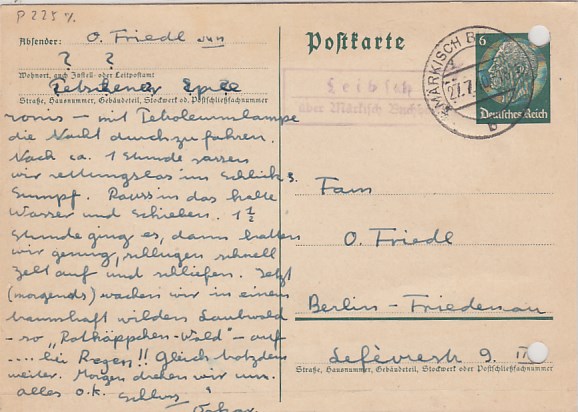 P 225 %
Absender: O. Friedl jun
? ?
Wohnort, auch Zustell- oder Leitpostamt
Petschener Spree
Straße, Hausnummer, Gebäudeteil, Stockwerk od. Postschließfachnummer
ronis – mit Petroleumlampe
die Nacht durchzufahren.
Nach ca. 1 Stunde sassen
wir rettungslos im Schlick
Sumpf. Rauss in das kalte
Wasser und Schieben. 1 1/2
Stunde ging es, dann hatten
wir genug, schlugen schnell
Zelt auf und schliefen. Jetzt
(morgends) wachen wir in einem
traumhaft wilden Laubwald
– so „Rotkäppchen-Wald" – auf
.... bei Regen!! Gleich trotzdem
weiter. Morgen drehen wir um.
alles o.k. Schluss
Oskar
Postkarte
MÄRKISCH B
27.7.
b
6
Deutsches Reich
Leibsch
über Märkisch Buchholz
Fam
O. Friedl
Berlin-Friedenau
Lefèvrestr 9. II
Straße, Hausnummer, Gebäudeteil, Stockwerk oder Postschließfachnummer